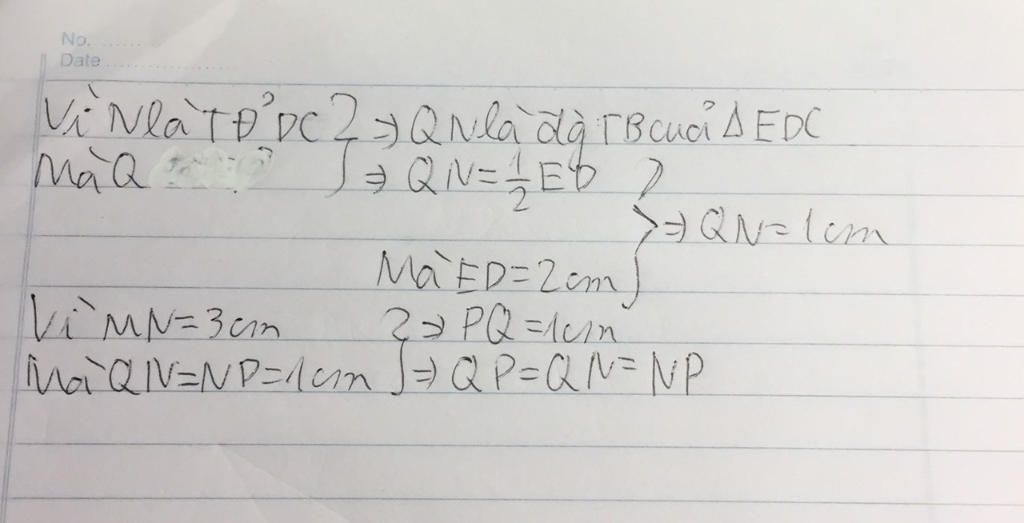 No. ........
Date ..................
Vì N là TĐ' DC } => QN là đg TB của Δ EDC
Mà Q } => QN = 1/2 ED }
} => QN = 1cm
Mà ED = 2cm }
Vì MN = 3cm } => PQ = 1cm
Mà QN = NP = 1cm } => QP = QN = NP